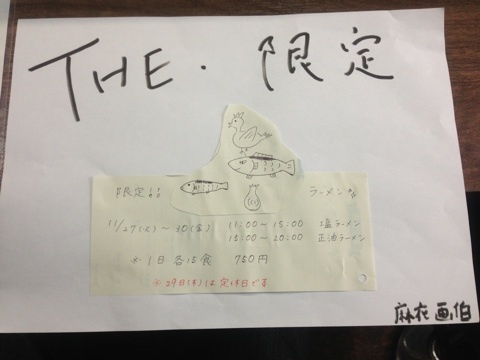 THE・限定
限定品
ラーメン
11/27(火)～30(金) 11:00～15:00 塩ラーメン
18:00～20:00 正油ラーメン
※1日各15食 750円
※29日(木)は定休日です
麻衣画伯